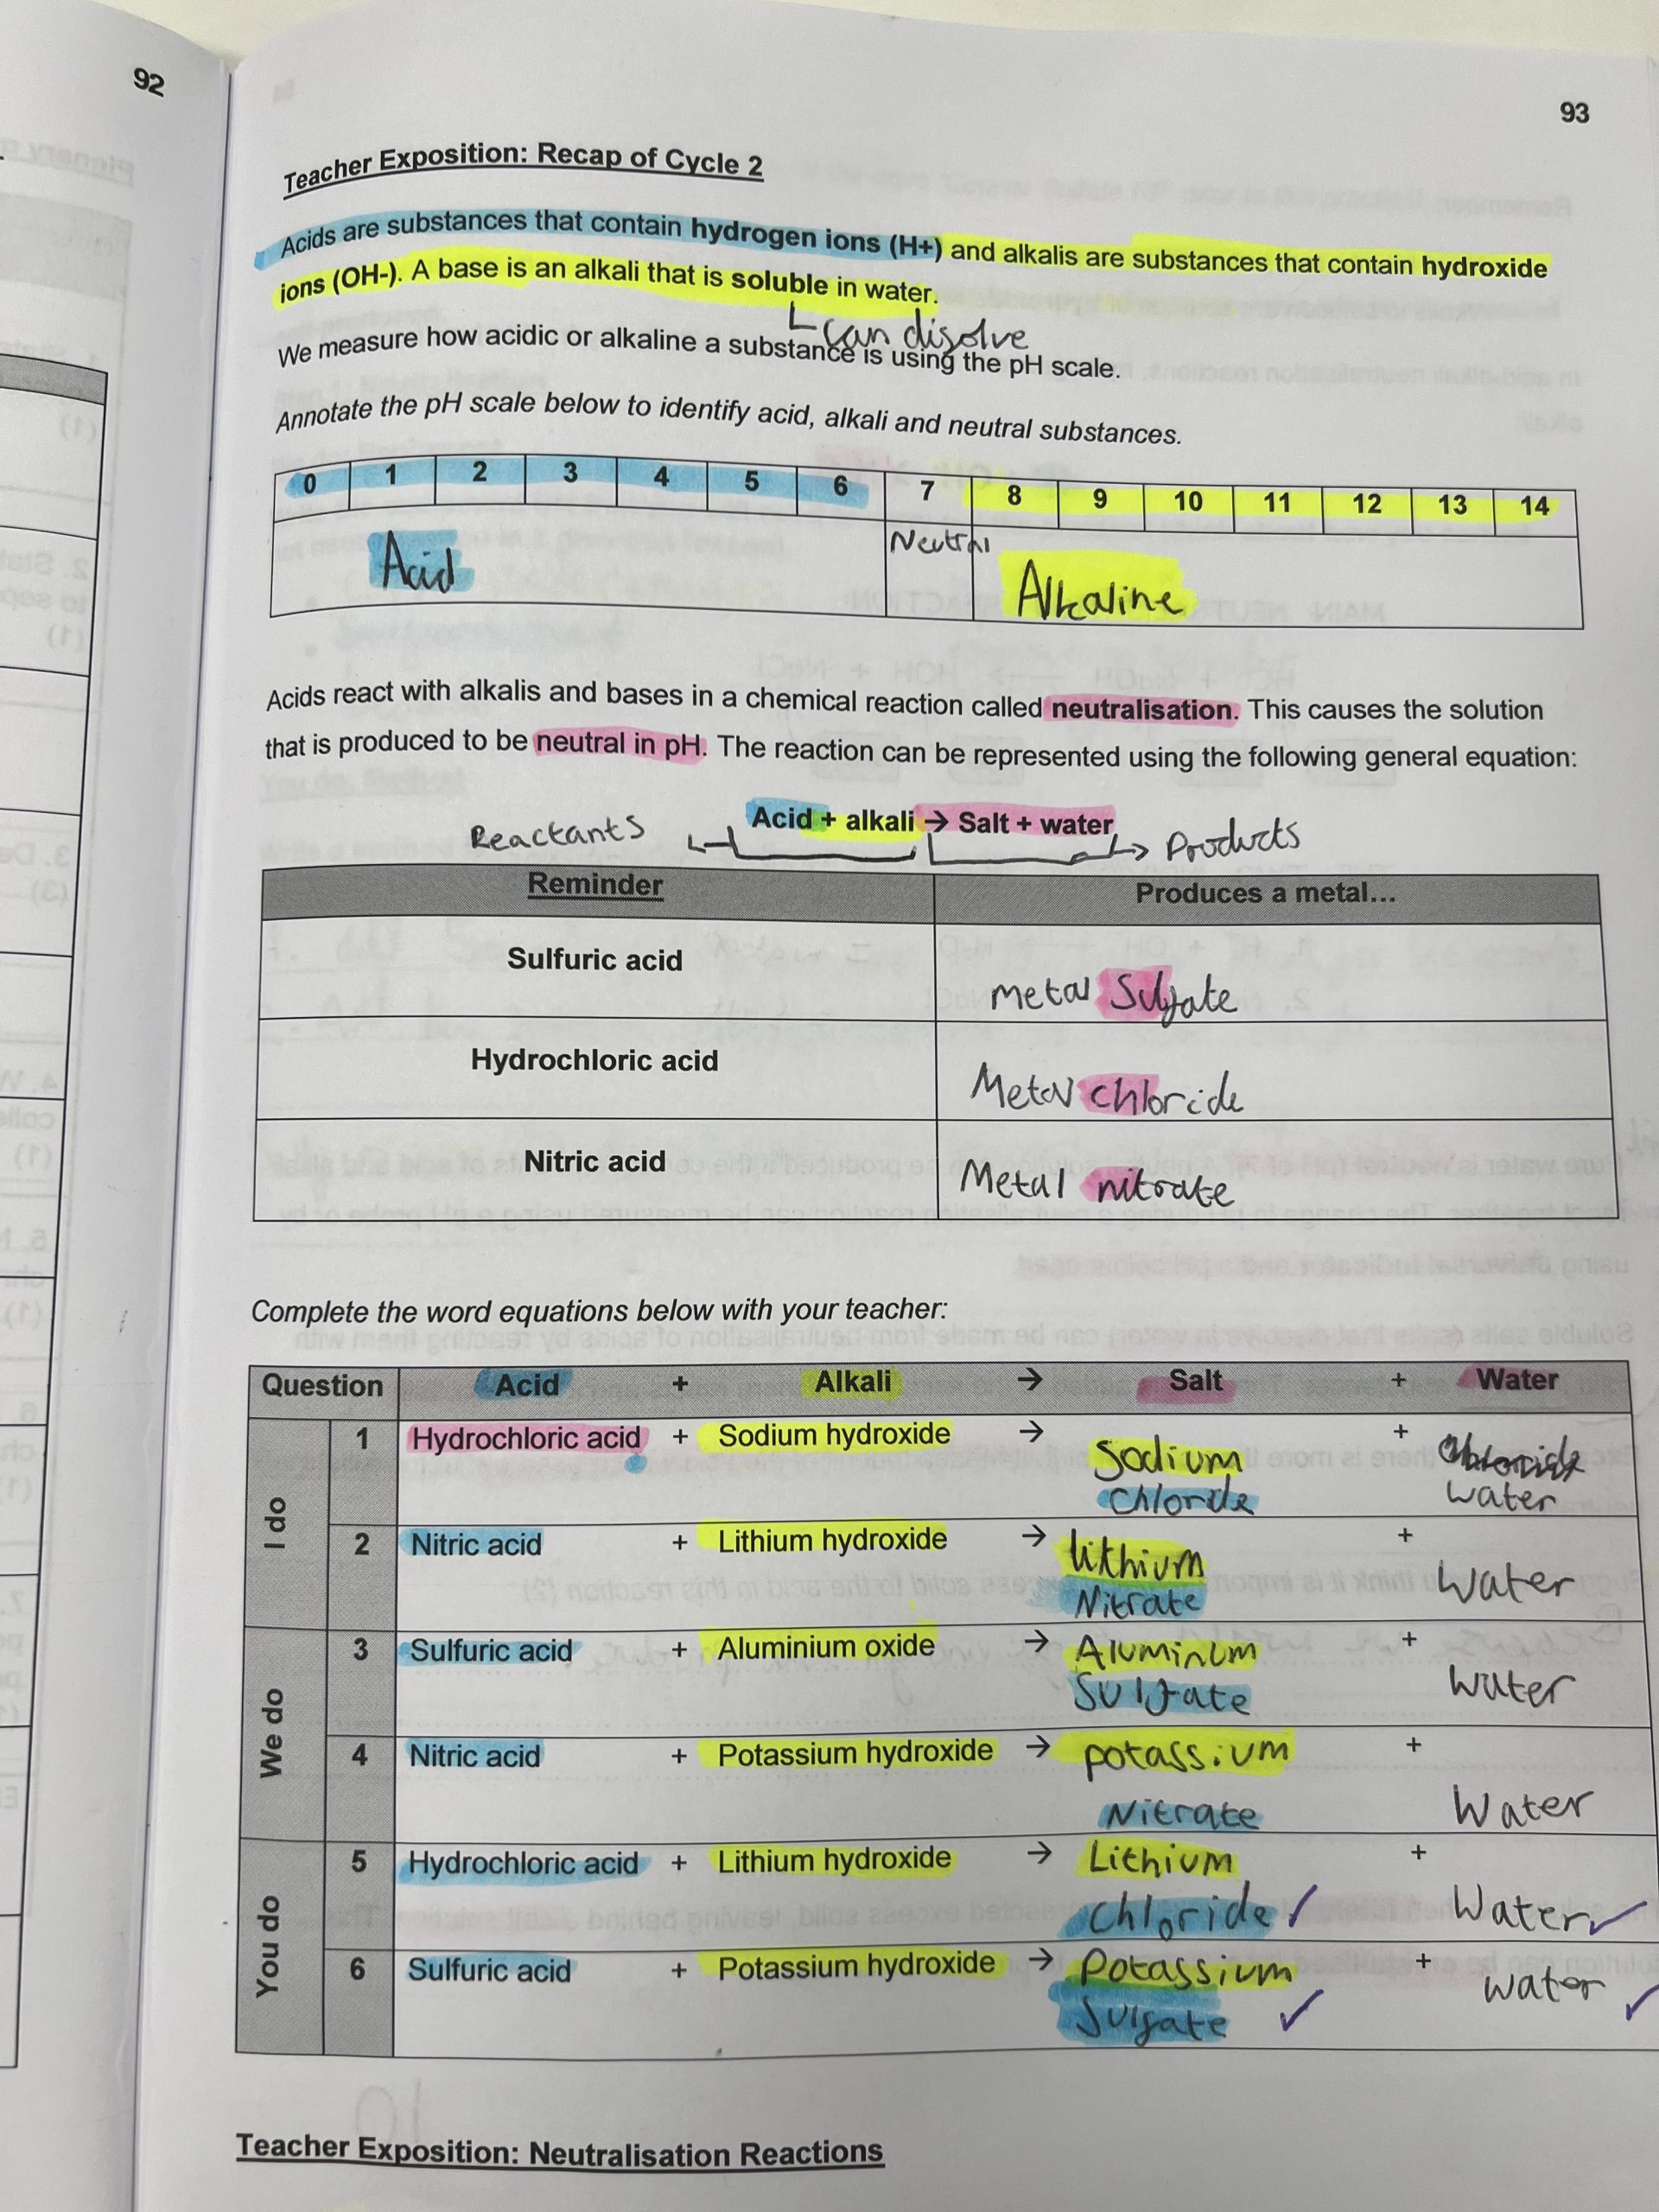 92
93
Teacher Exposition: Recap of Cycle 2
Acids are substances that contain hydrogen ions (H+) and alkalis are substances that contain hydroxide
ions (OH-). A base is an alkali that is soluble in water.
can disolve
We measure how acidic or alkaline a substance is using the pH scale.
Annotate the pH scale below to identify acid, alkali and neutral substances.
0 1 2 3 4 5 6 7 8 9 10 11 12 13 14
Acid Neutral Alkaline
Acids react with alkalis and bases in a chemical reaction called neutralisation. This causes the solution
that is produced to be neutral in pH. The reaction can be represented using the following general equation:
Reactants Acid + alkali → Salt + water Products
Reminder Produces a metal...
Sulfuric acid metal Sulfate
Hydrochloric acid Metal chloride
Nitric acid Metal nitrate
Complete the word equations below with your teacher:
Question Acid + Alkali → Salt + Water
I do
1 Hydrochloric acid + Sodium hydroxide → Sodium +
chloride water
2 Nitric acid + Lithium hydroxide → lithium + Water
Nitrate
We do
3 Sulfuric acid + Aluminium oxide → Aluminum + Water
Sulfate
4 Nitric acid + Potassium hydroxide → potassium +
Nitrate Water
You do
5 Hydrochloric acid + Lithium hydroxide → Lithium +
chloride ✓ Water ✓
6 Sulfuric acid + Potassium hydroxide → Potassium + water ✓
Sulfate ✓
Teacher Exposition: Neutralisation Reactions